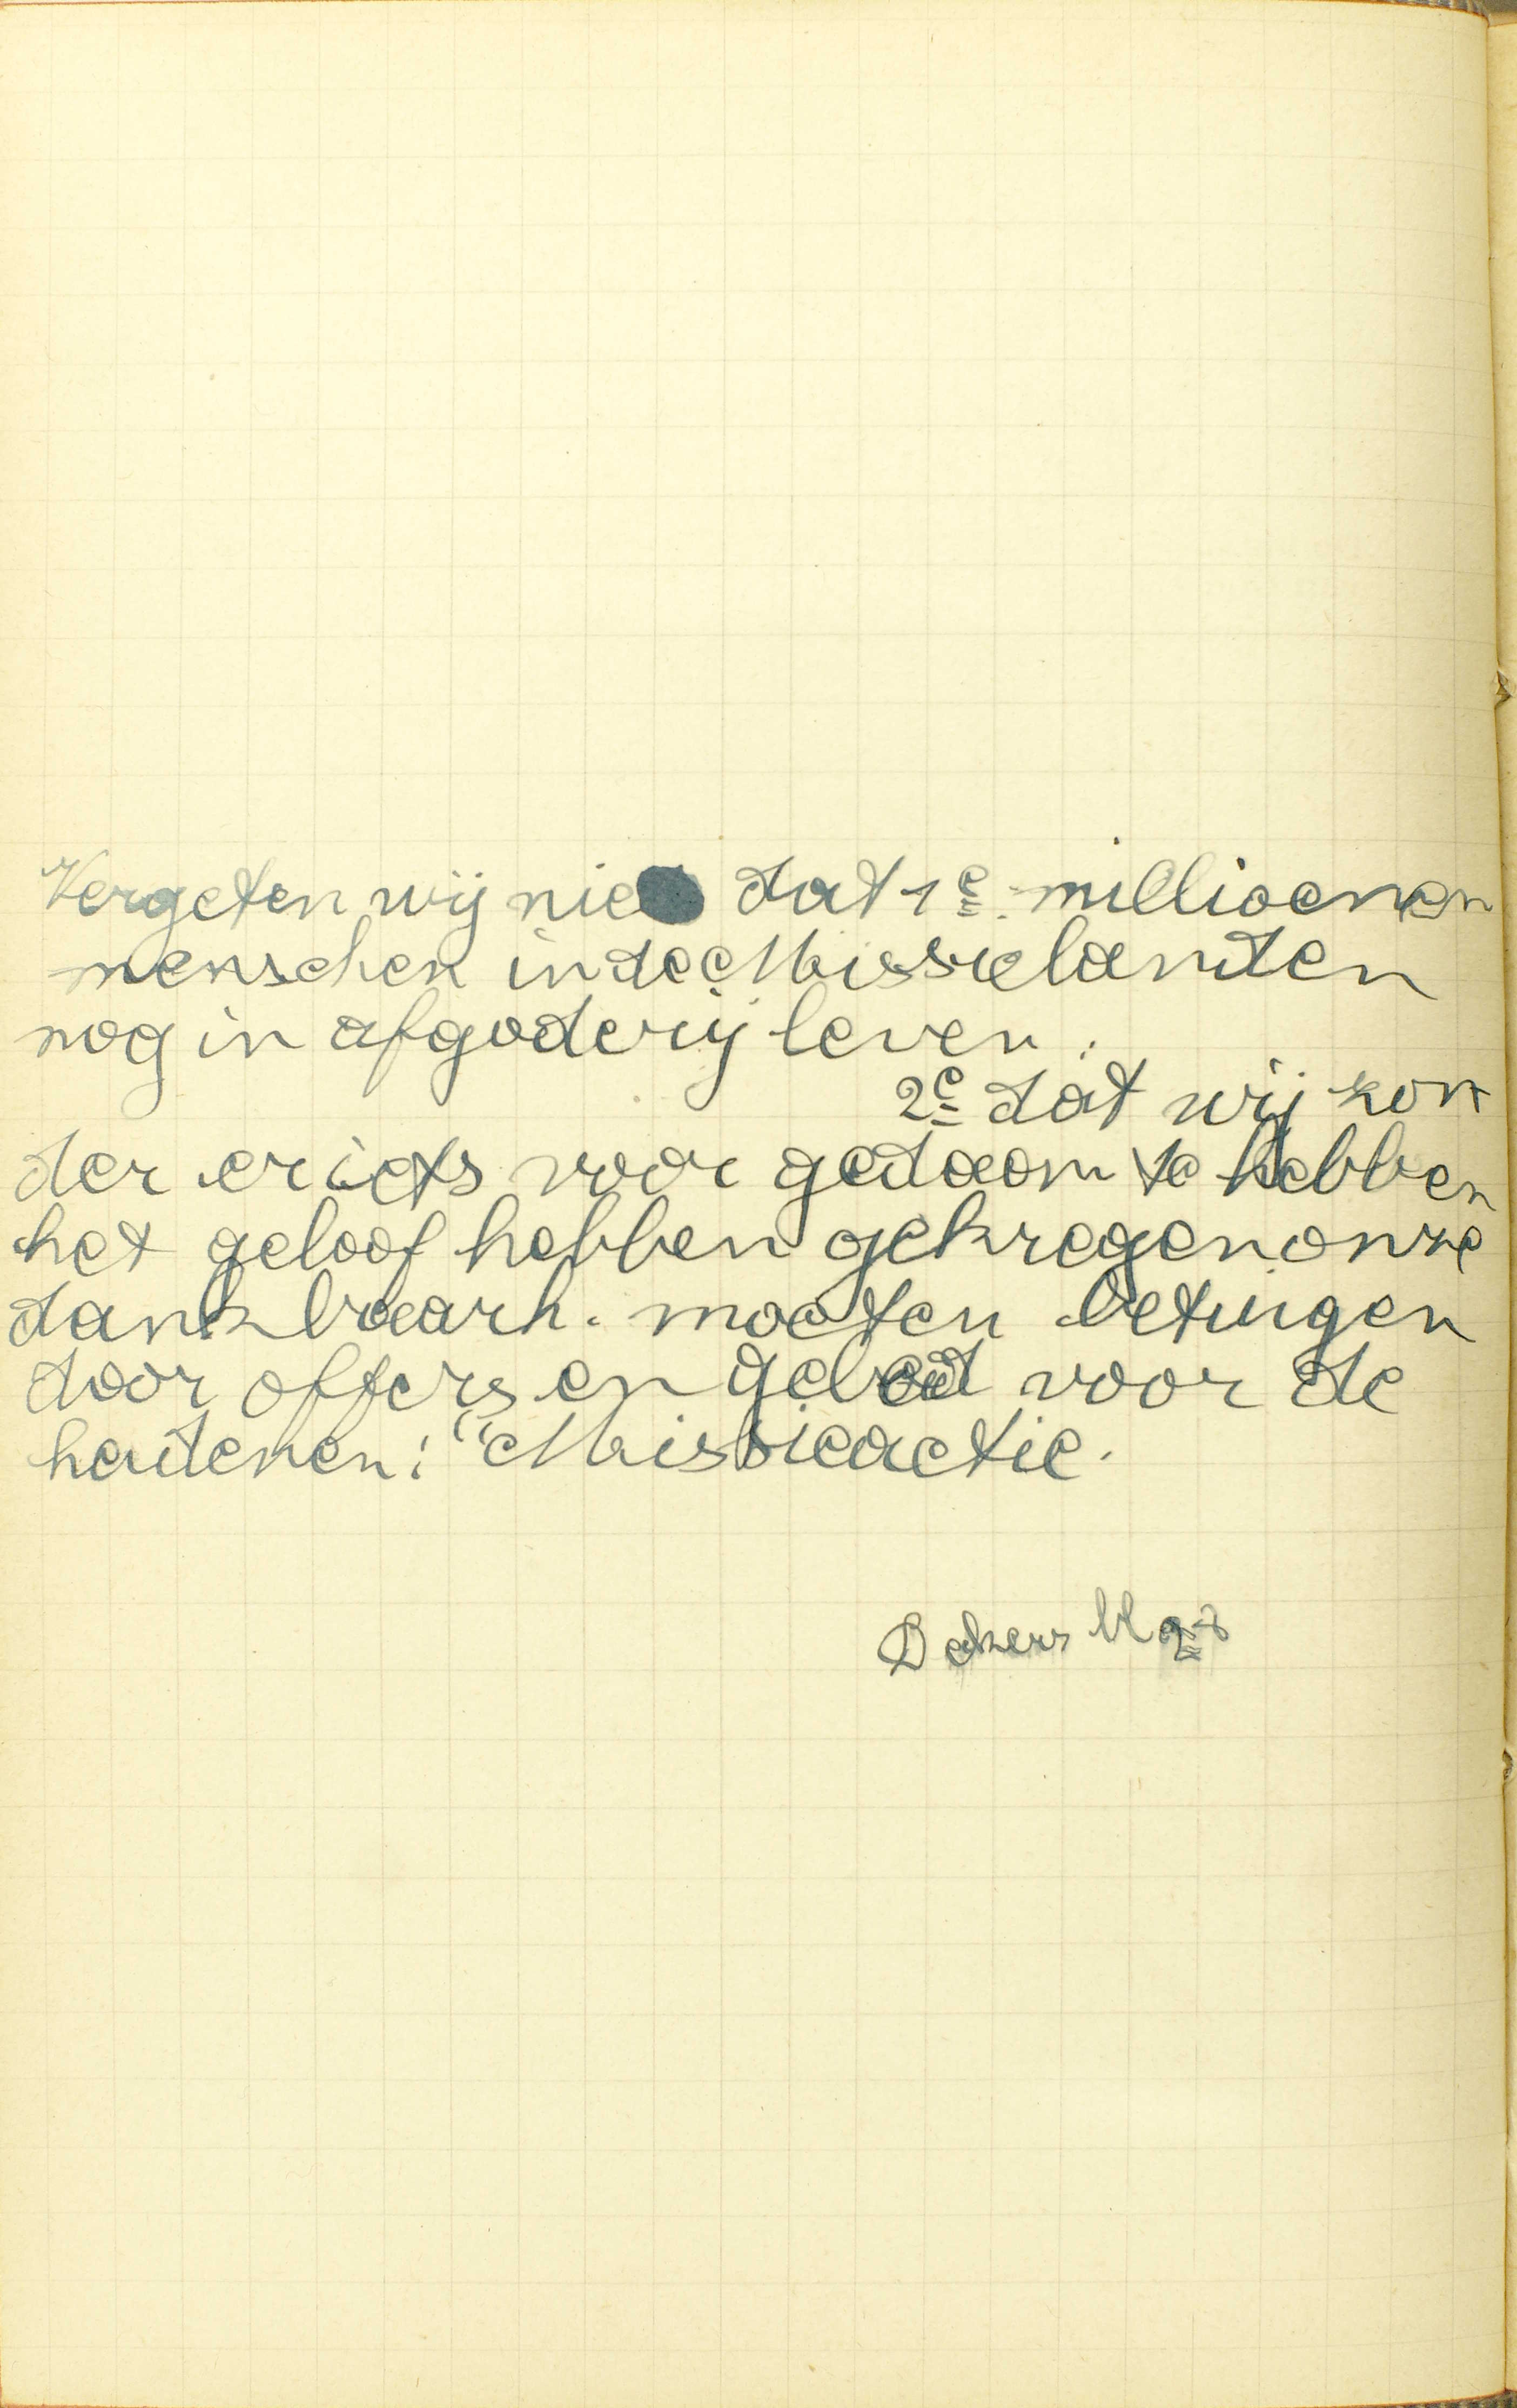 Vergeten wij niet dat 1e millioenen
menschen in de Missielanden
nog in afgoderij leven.
2e dat wij zon
der er iets voor gedaan te hebben
het geloof hebben gekregen onze
dankbaarh. moeten betuigen
door offers en gebed voor de
heidenen: "Missieactie.
Dekers M